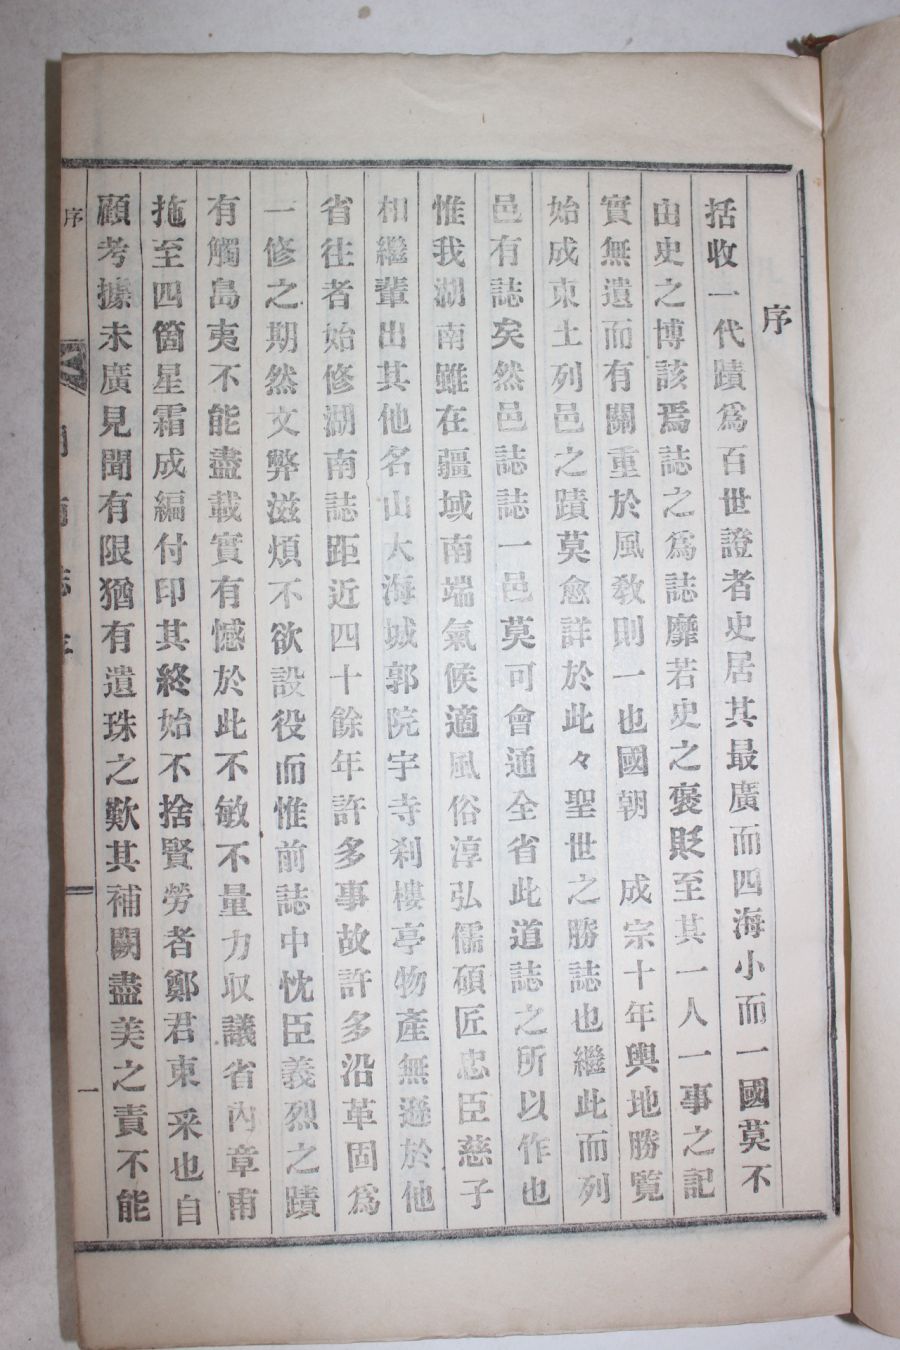 序
括收一代蹟爲百世證者史居其最廣而四海小而一國莫不
由史之博該焉誌之爲誌靡若史之褒貶至其一人一事之記
實無遺而有關重於風敎則一也國朝 成宗十年輿地勝覧
始成東土列邑之蹟莫愈詳於此々聖世之勝誌也繼此而列
邑有誌矣然邑誌誌一邑莫可會通全省此道誌之所以作也
惟我湖南雖在疆域南端氣候適風俗淳弘儒碩匠忠臣慈子
相繼輩出其他名山大海城郭院宇寺刹樓亭物產無遜於他
省往者始修湖南誌距近四十餘年許多事故許多沿革固爲
一修之期然文弊滋煩不欲設役而惟前誌中忱臣義烈之蹟
有觸島夷不能盡載實有憾於此不敏不量力収議省內章甫
拖至四箇星霜成編付印其終始不捨賢勞者鄭君東采也自
顧考據未廣見聞有限猶有遺珠之歎其補闕盡美之責不能
序
一